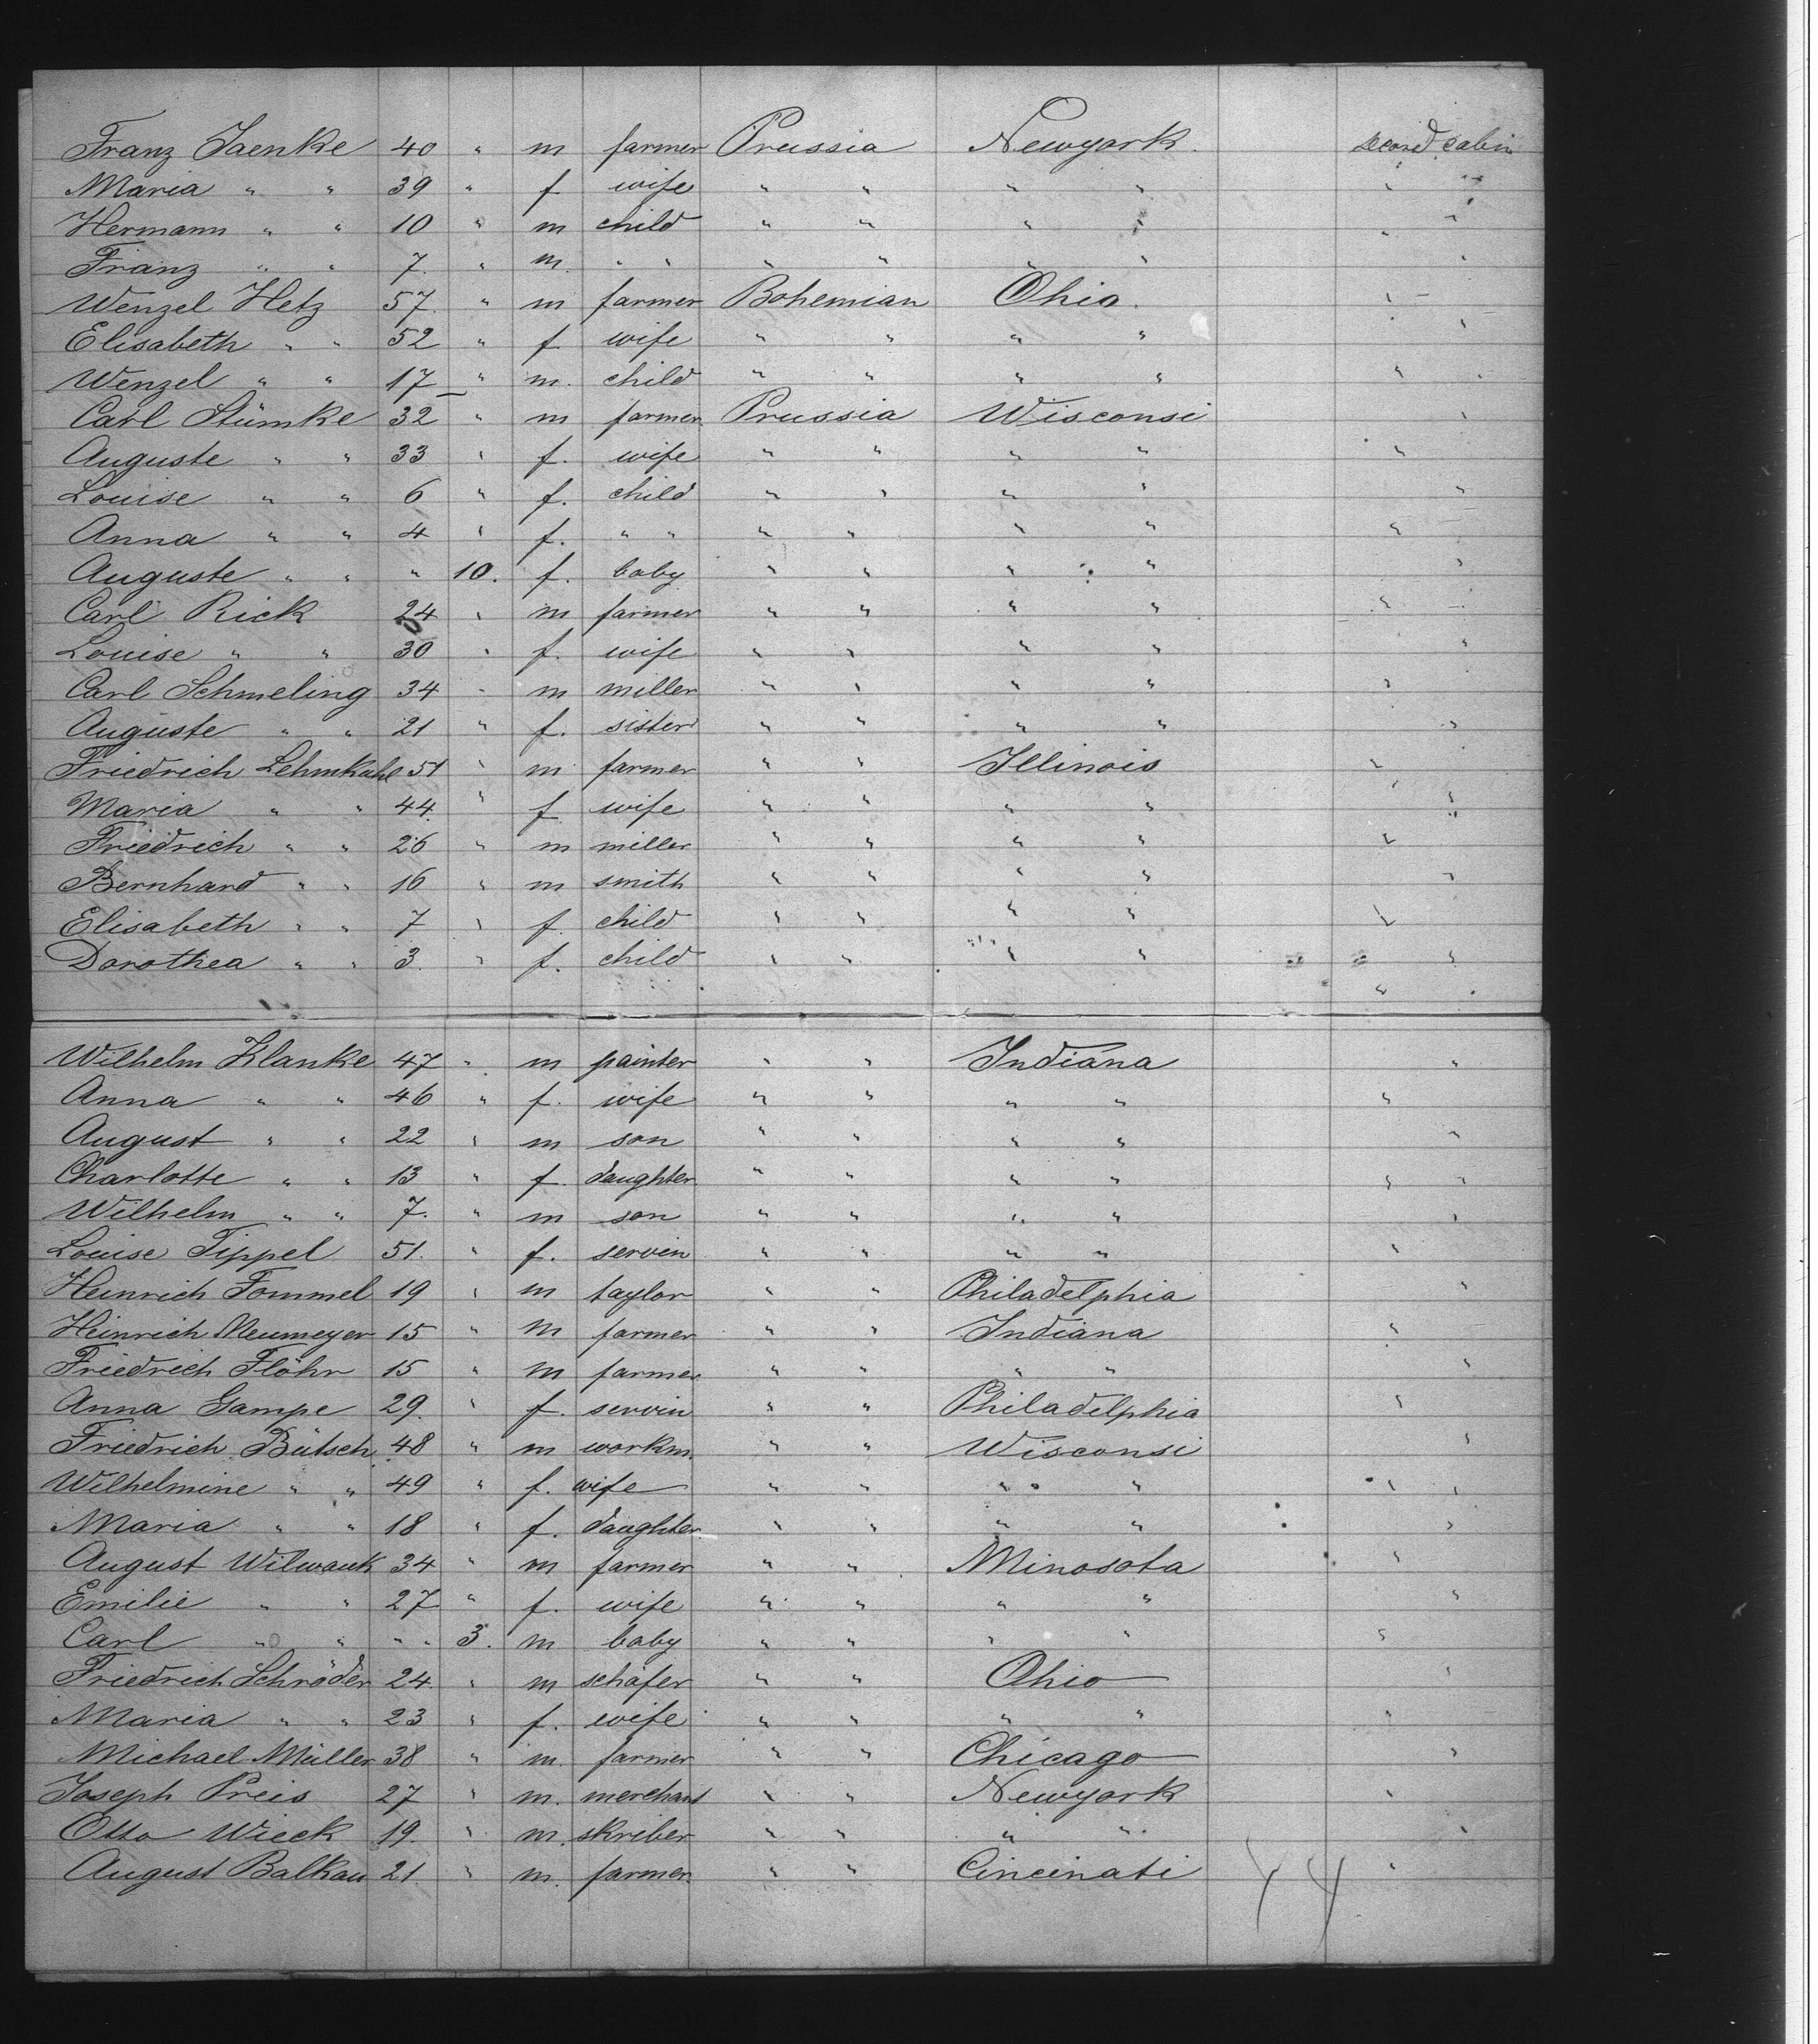 Franz Jaenke 40 " m farmer Prussia Newyork. second cabin
Maria " " 39 " f wife " " " " " "
Hermann " " 10 " m child " " " " " "
Franz " " 7. " m. " " " " " " "
Wenzel Hetz 57. " m farmer Bohemian Ohio. "
Elisabeth " " 52 " f wife " " " " "
Wenzel " " 17 " m. child " " " " "
Carl Stümke 32 " m farmer. Prussia Wisconsi "
Auguste " " 33 " f. wife " " " " "
Louise " " 6 " f. child " " " " "
Anna " " 4 " f. " " " " " " "
Auguste " " " 10. f. baby " " " " "
Carl Rick 24 " m farmer " " " " "
Louise " " 30 " f. wife " " " " "
Carl Schmeling 34 " m miller " " " " "
Auguste " " 21 " f. sister " " " " "
Friedrich Lehmkuhl 51 " m farmer " " Illinois "
Maria " " 44. " f wife " " " " "
Friedrich " " 26 " m miller " " " " "
Bernhard " " 16 " m smith " " " " "
Elisabeth " " 7 " f. child " " " " "
Dorothea " " 3. " f. child " " " " "
"
Wilhelm Klanke 47 " m painter " " Indiana "
Anna " " 46 " f. wife " " " " "
August " " 22 " m son " " " " "
Charlotte " " 13 " f. daughter " " " " " "
Wilhelm " " 7. " m son " " " " "
Louise Tippel 51. " f. servin " " " " "
Heinrich Fommel 19 " m taylor " " Philadelphia "
Heinrich Neumeyer 15 " m farmer " " Indiana "
Friedrich Flöhr 15 " m farmer " " " " "
Anna Gampe 29. " f. servin " " Philadelphia "
Friedrich Bütsch 48 " m workm. " " Wisconsi "
Wilhelmine " " 49 " f. wife " " " " " "
Maria " " 18 " f. daughter " " " " "
August Wilwauk 34 " m farmer " " Minosota "
Emilie " " 27 " f. wife " " " " "
Carl " " " " 3. m baby " " " " "
Friedrich Schröder 24. " m schäfer " " Ohio "
Maria " " 23 " f. wife " " " " "
Michael Müller 38 " m. farmer " " Chicago "
Joseph Preis 27 " m. merchant " " Newyork "
Otto Wieck 19. " m. skriber " " " " "
August Balkau 21. " m. farmer. " " Cincinati "